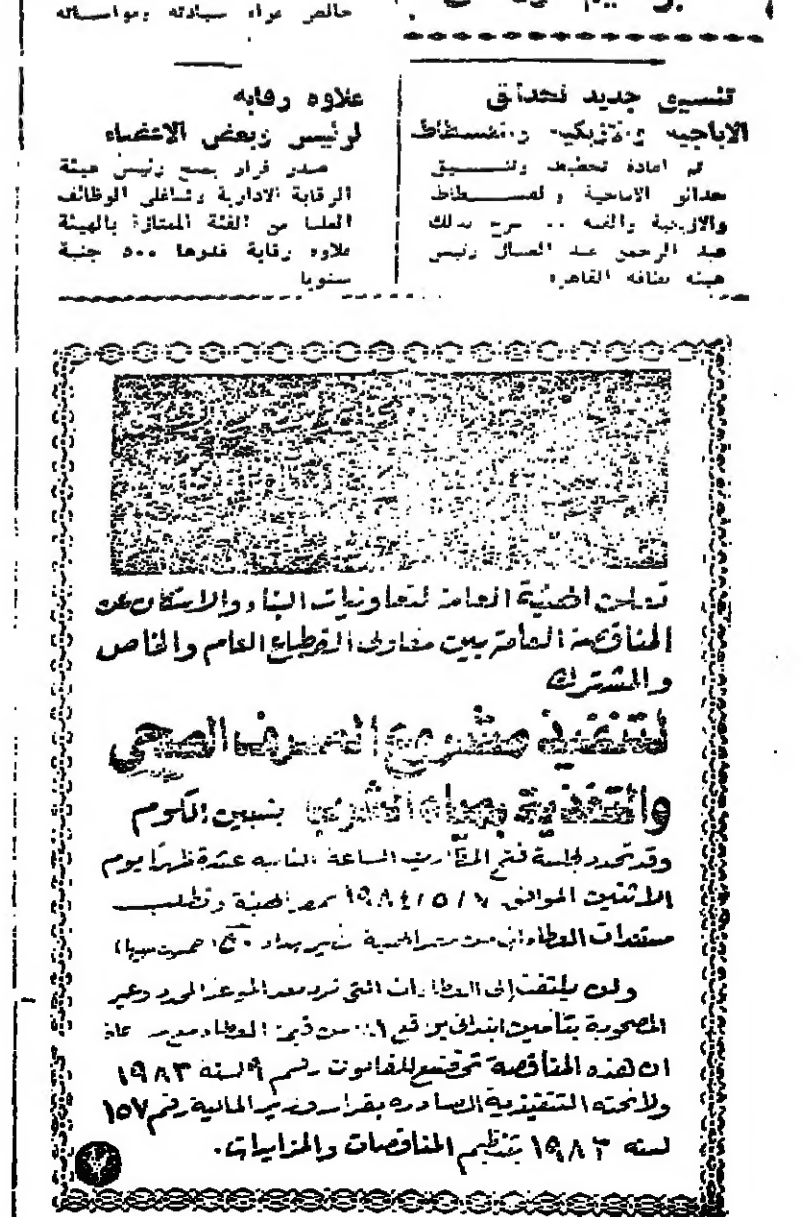 خالص عزاء سيادته ومواساته
تنسيق جديد لحدائق
الاباجية والازبكية والفسطاط
تم اعادة تخطيط وتنسيق
حدائق الاباجية والفسطاط
والازبكية والقبة .. صرح بذلك
عبد الرحمن عبد العسال رئيس
هيئة نظافة القاهرة
علاوة رقابة
لرئيس وبعض الاعضاء
صدر قرار بمنح رئيس هيئة
الرقابة الادارية وشاغلي الوظائف
العليا من الفئة الممتازة بالهيئة
علاوة رقابة قدرها ٥٠٠ جنية
سنويا
تعلن الهيئة العامة لتعاونيات البناء والاسكان عن
المناقصة العامة بين مقاولى القطاع العام والخاص
والمشترك
لتنفيذ مشروع الصرف الصحى
والتغذية بمياه الشرب بشبين الكوم
وقد تحدد لجلسة فتح المظاريف الساعة الثانية عشرة ظهرًا يوم
الاثنين الموافق ١٩٨٤/٥/٧ بمقر الهيئة وتطلب
مستندات العطاء من مقر الهيئة نظير سداد
ولن يلتفت إلى العطاءات التى ترد بعد الموعد المحدد وغير
المصحوبة بتأمين ابتدائى بواقع ١٪ من قيمة العطاء
ان هذه المناقصة تخضع للقانون رقم ٩ لسنة ١٩٨٣
ولائحته التنفيذية الصادره بقرار وزير المالية رقم ١٥٧
لسنة ١٩٨٣ بتنظيم المناقصات والمزايدات.